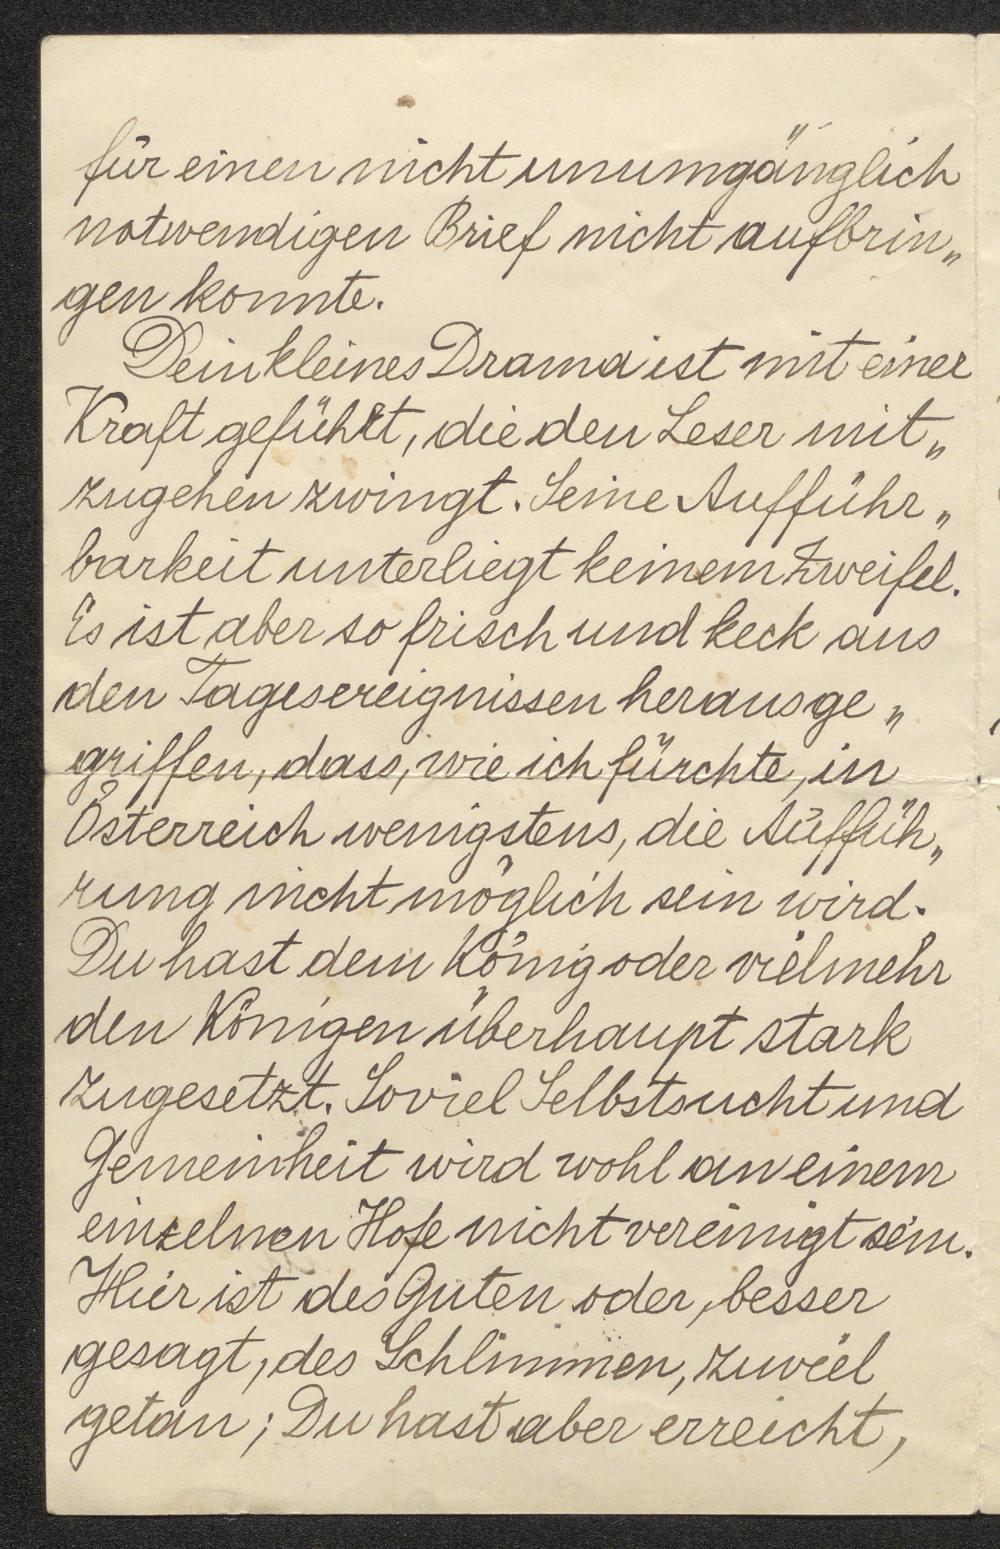 für einen nicht unumgänglich
notwendigen Brief nicht aufbrin„
gen konnte.
Dein kleines Drama ist mit einer
Kraft geführt, die den Leser mit„
zugehen zwingt. Seine Aufführ„
barkeit unterliegt keinem Zweifel.
Es ist aber so frisch und keck aus
den Tagesereignissen herausge„
griffen, dass, wie ich fürchte, in
Österreich wenigstens, die Auffüh„
rung nicht möglich sein wird.
Du hast dem König oder vielmehr
den Königen überhaupt stark
zugesetzt. Soviel Selbstsucht und
Gemeinheit wird wohl an einem
einzelnen Hofe nicht vereinigt sein.
Hier ist des Guten oder, besser
gesagt, des Schlimmen, zuviel
getan; Du hast aber erreicht,